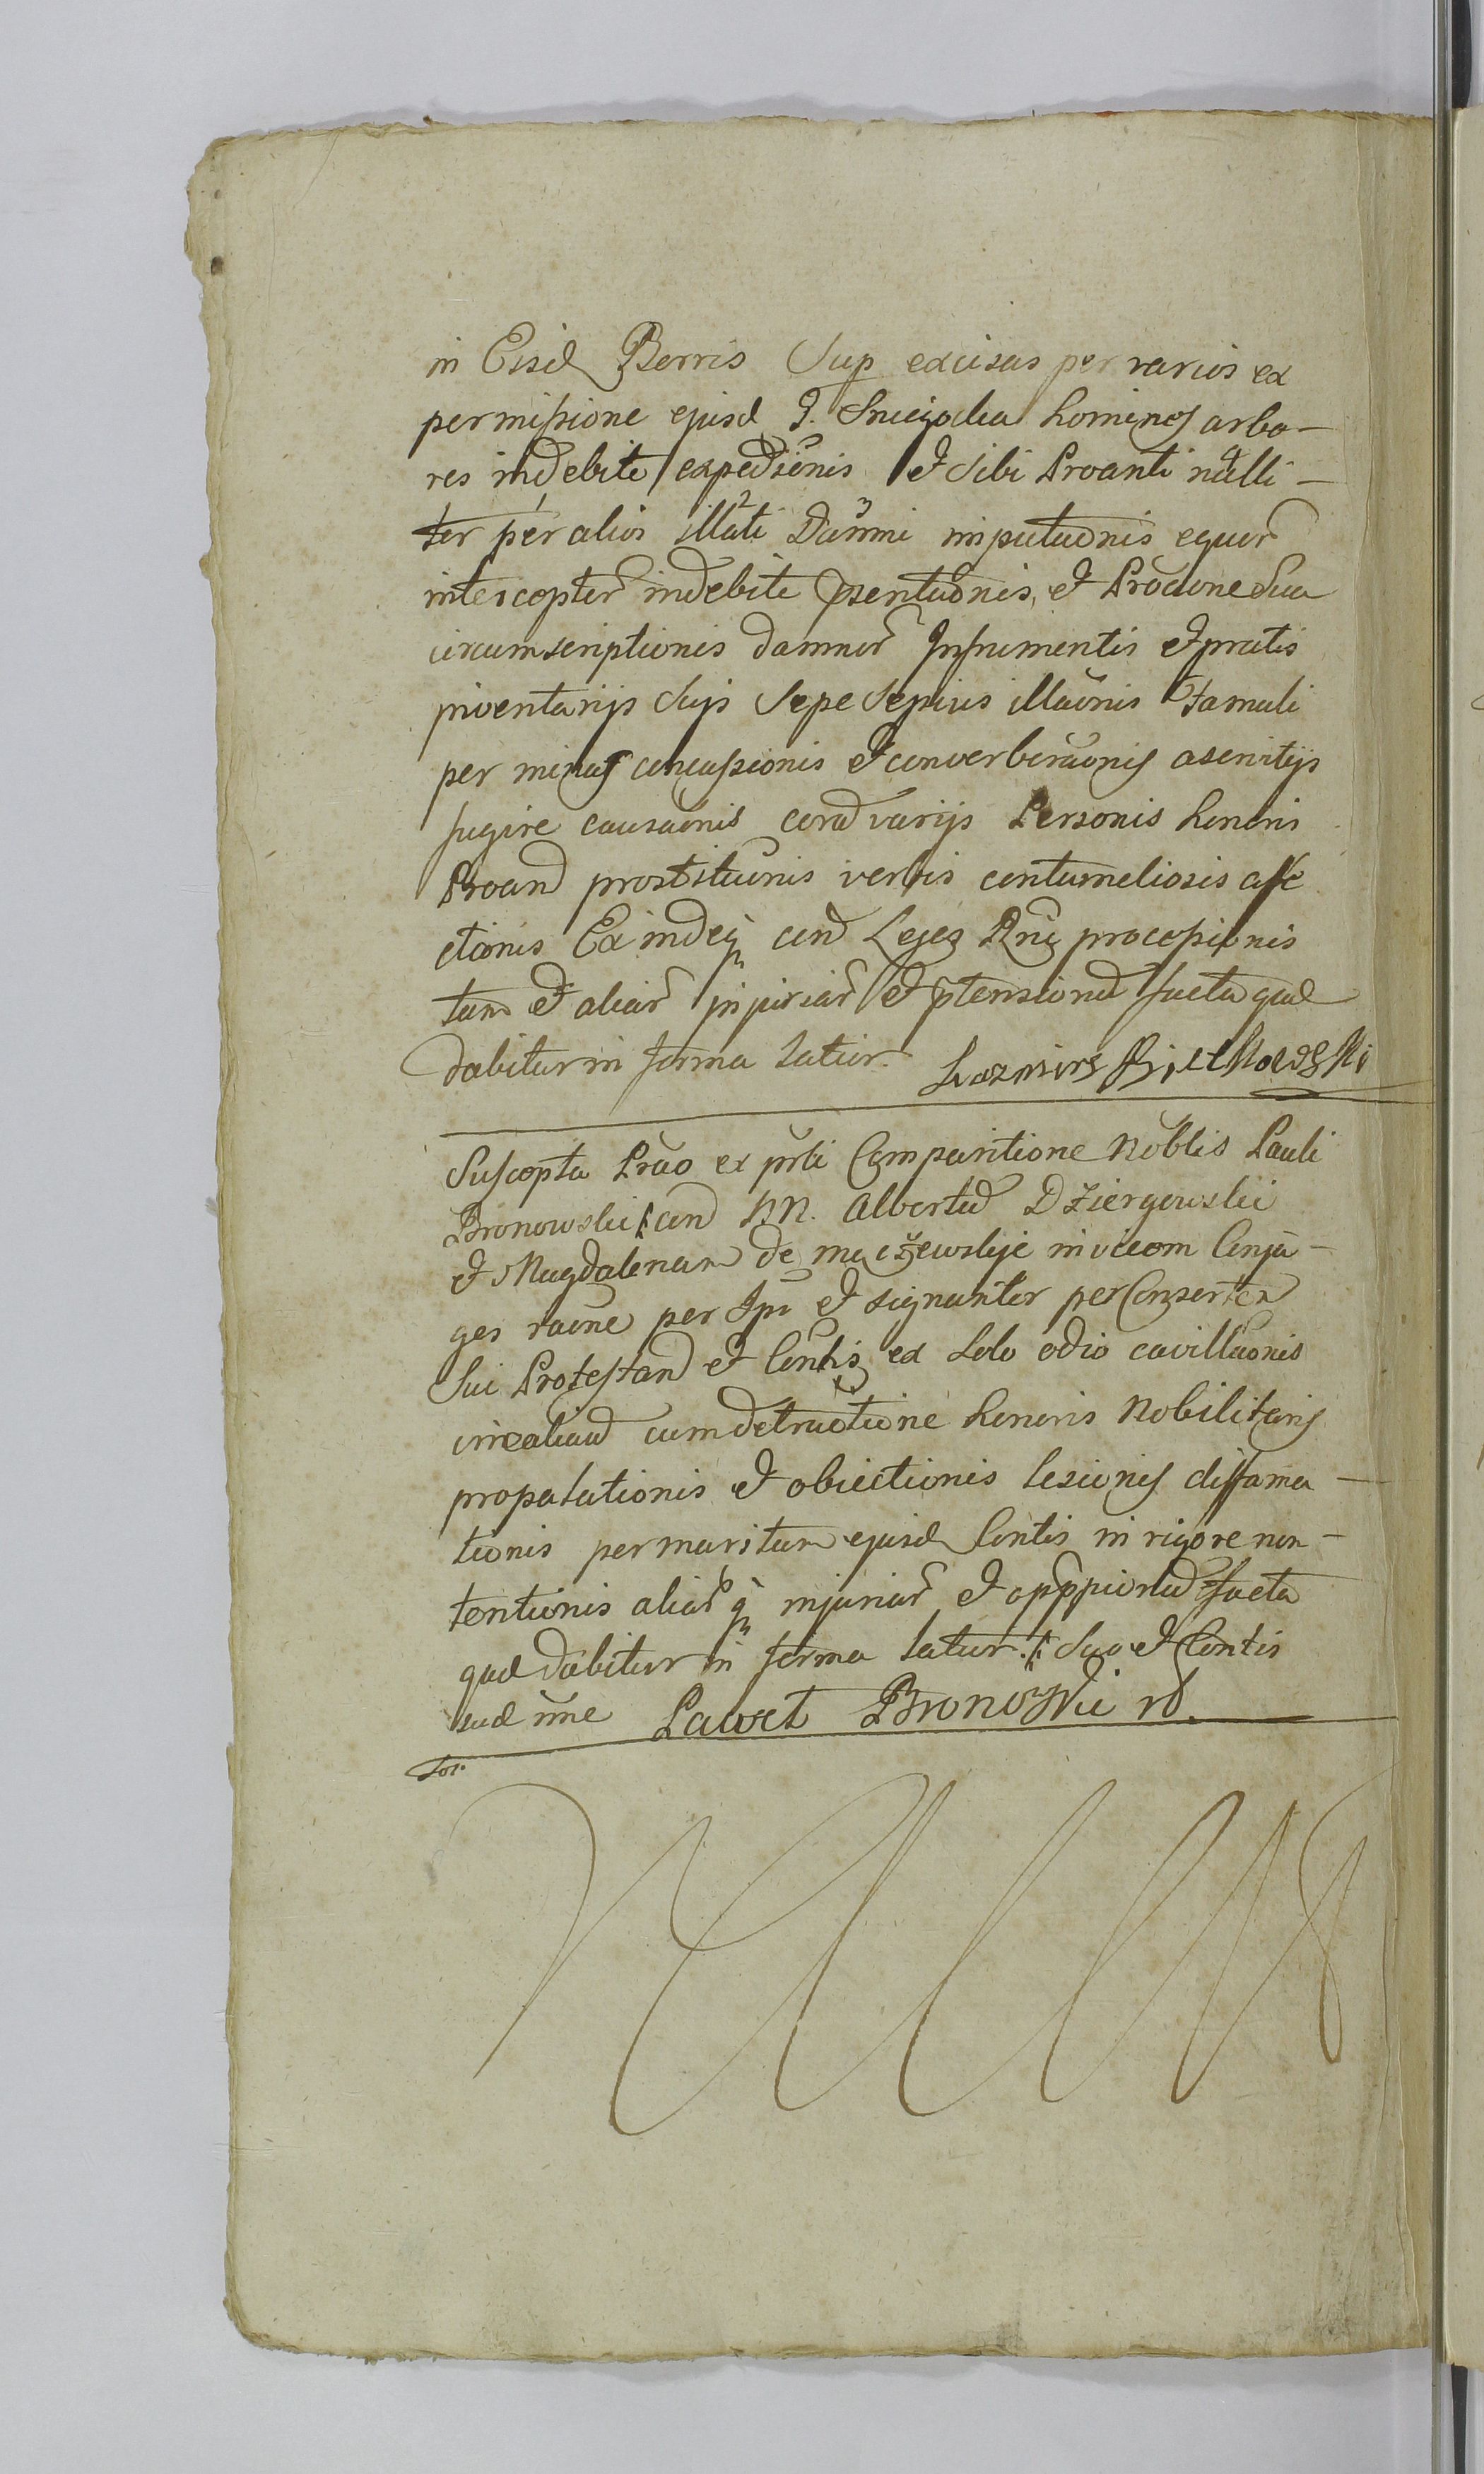 in Eisd Borris Sup excisas per varios ex
permissione ejusd G. Sniezodia homines arbo-
res indebite expedionis et sibi Proanti nulli-
ter per alios illati Damni imputaonis equor
interceptor indebite psentaonis, et Procione sua
circumscriptionis damnor In frumentis et pratis
inventarijs suis sepe sepius illaonis Famuli
per minas concussionis et converberaonis a servitijs
fugire causaonis coram varijs Personis honoris
Proan prostituonis verbis contumeliosis affe
ctionis Ex indeq con Leges Rni processionis
tum et aliar injuriar et ptensionu facta quae
dabitur in forma latior. Kazmirz
Suscepta Prao ex prti Comparitione Noblis Pauli
Bronowski con NN. Albertum Dziergowski
et Magdalenam de Maczewskje invicem Conju-
ges raone per Ipm et signanter per Consortem
Sui Protestan et Contis ex solo odio cavillaonis
irrealium cum detractione honoris Nobilitaris
propalationis et obiectionis lesionis diffama-
tionis per maritum ejusd Contis in rigore non-
tentionis aliar q injuriar et oppssionu facta
quae dabitur in forma latior. suo et Contis
sud nne Paweł Bronowski